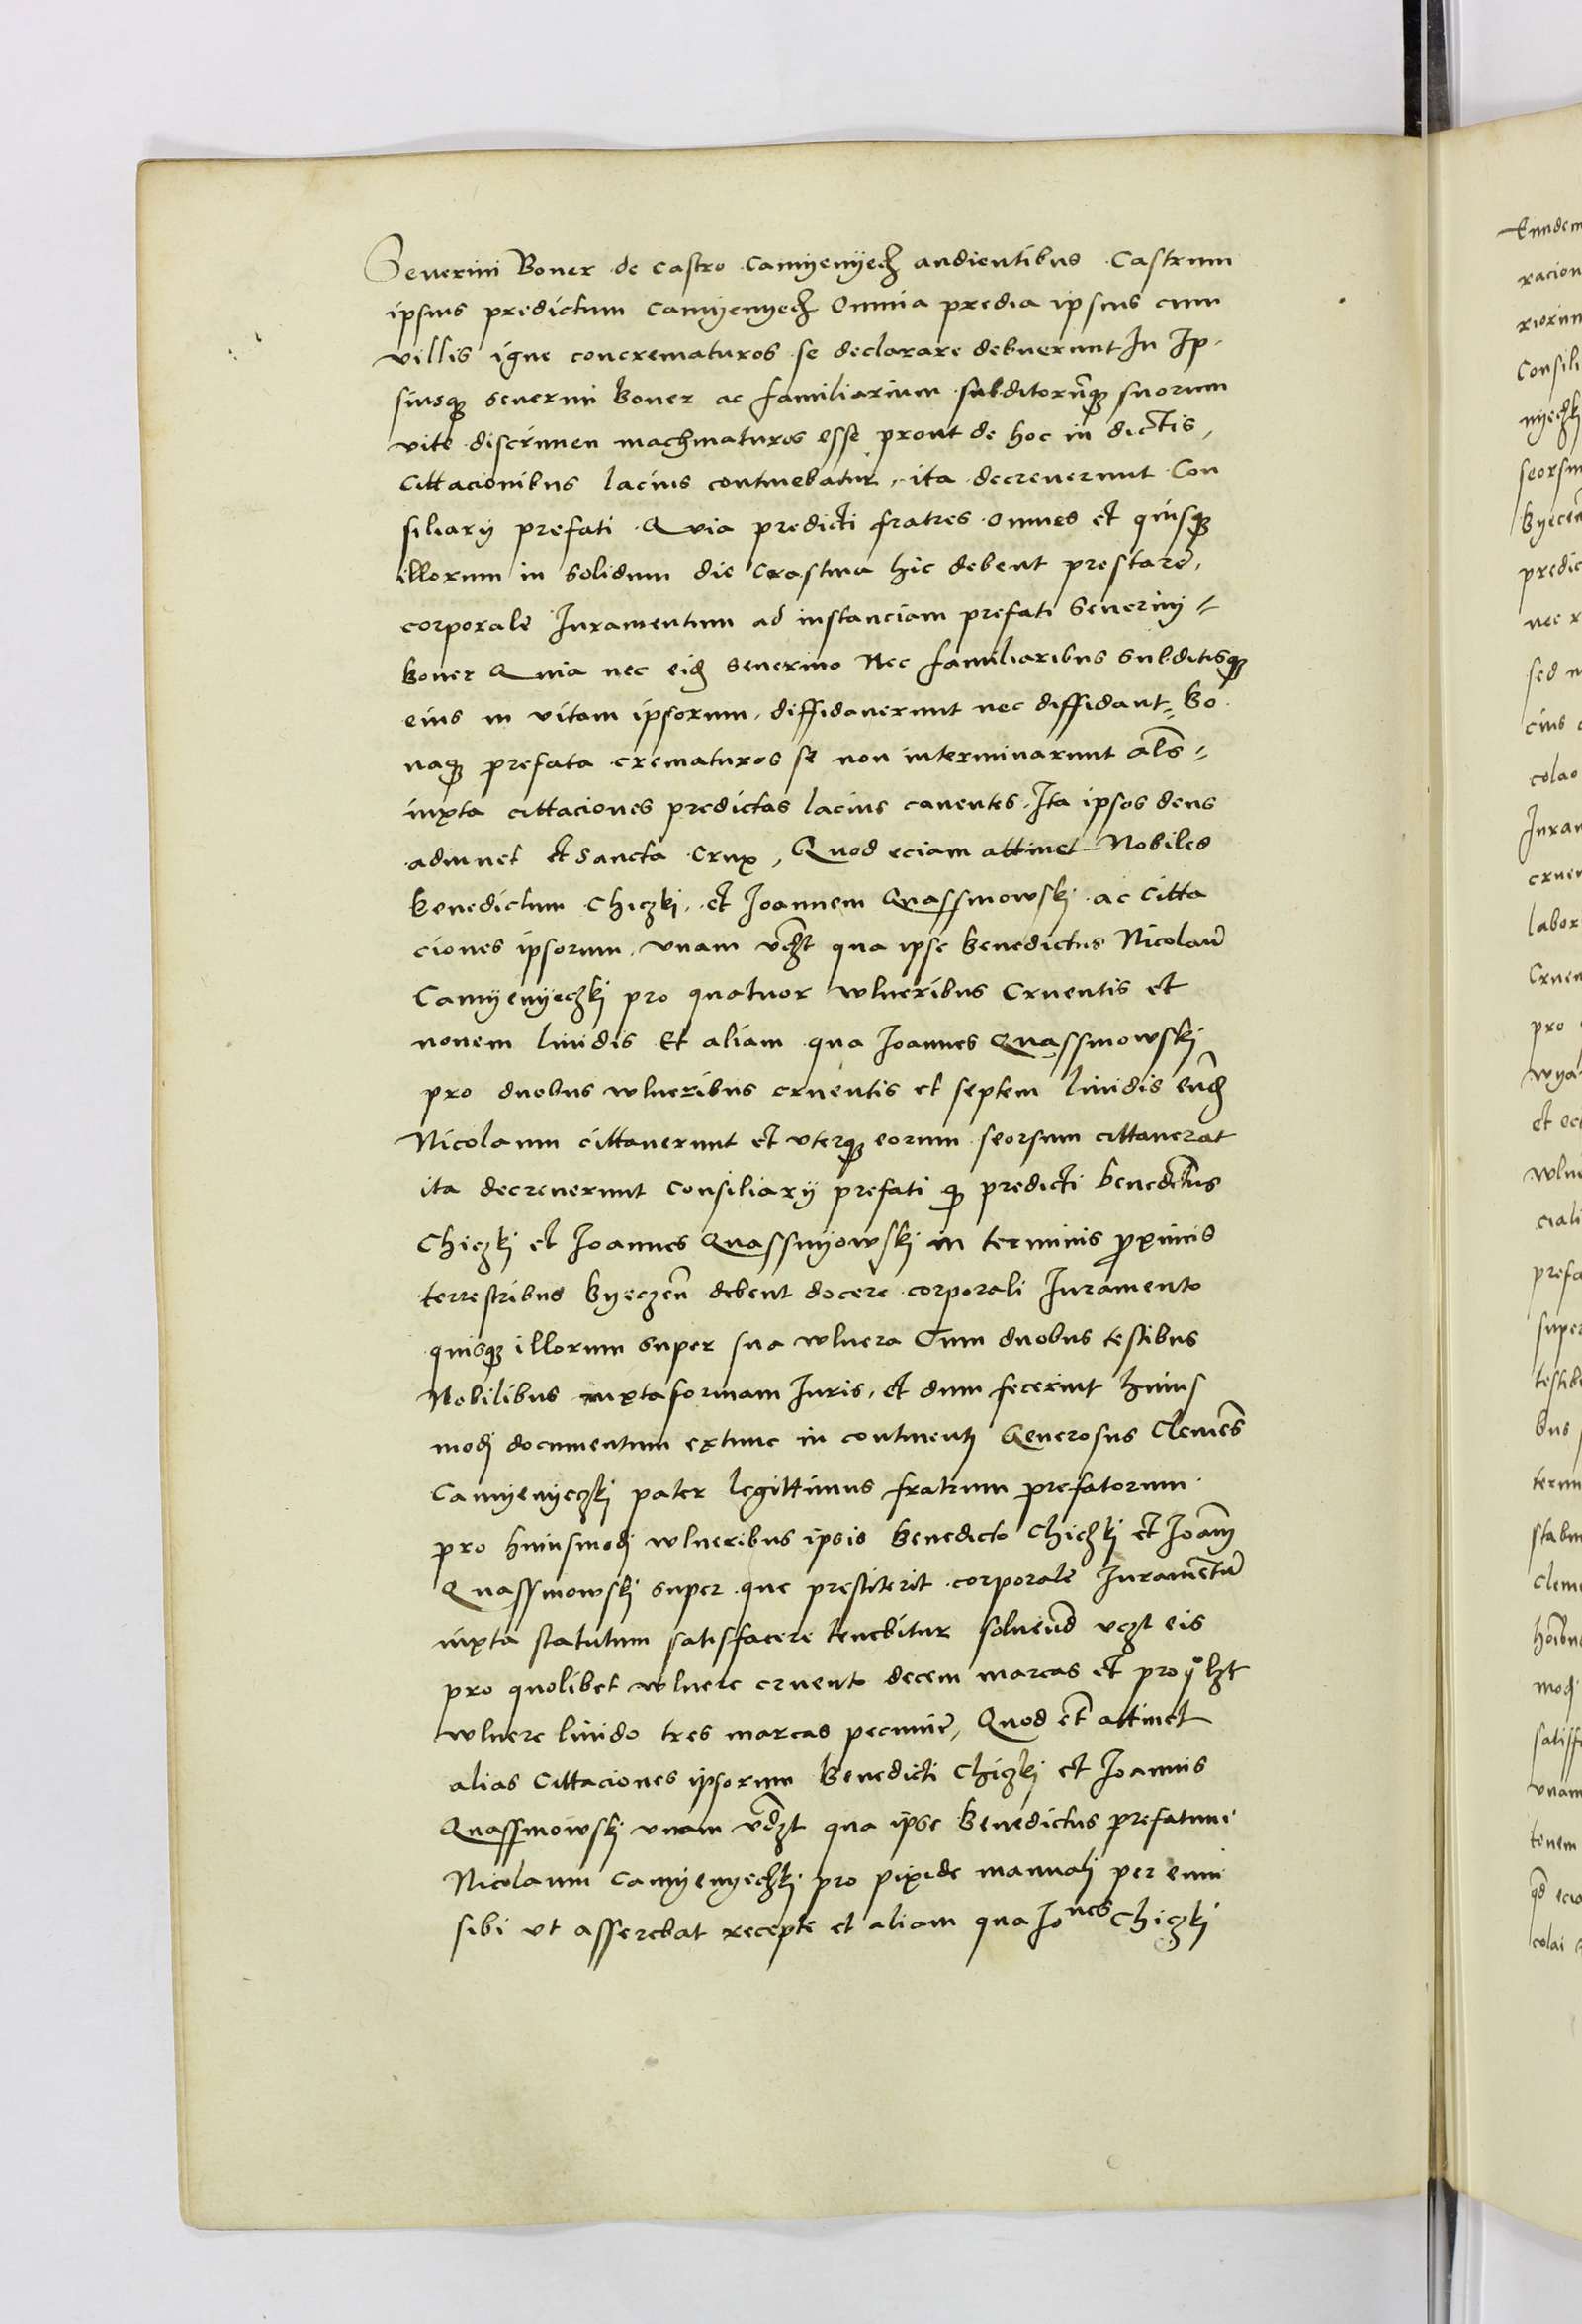 Seuerini Boner de castro Camyenyecz audientibus Castrum
ipsius predictum Camyenyecz Omnia predia ipsius cum
villis igne concrematuros se declarare debuerunt In Ip-
siusq3 Seuerini Boner ac familiarium subditorumq3 suorum
vite discrimen machinaturos esse prout de hoc in dictis,
Cittacionibus lacius continebatur, ita decreuerunt Con
siliarij prefati Quia predicti fratres omnes et quisq3
illorum in solidum die Crastina hic debent prestare,
corporale Iuramentum ad instanciam prefati Seuerini =
Boner Quia nec eid3 Seuerino Nec familiaribus subditisq3
eius in vitam ipsorum, diffidauerunt nec diffidant = Bo
naq3 prefata crematuros se non interminarunt als =
iuxta cittaciones predictas lacius canentes, Ita ipsos deus
adiuuet et Sancta Crux, Quod eciam attinet Nobiles
Benedictum Chiczki, et Joannem Quassmowski ac Citta
ciones ipsorum, vnam vczt qua ipse Benedictus Nicolau
Camyenyeczki pro quatuor wlneribus Cruentis et
nouem liuidis Et aliam qua Joannes Quassmowski
pro duobus wlneribus cruentis et septem liuidis eund3
Nicolaum cittauerunt et vterq3 eorum seorsum cittauerat
ita decreuerunt Consiliarij prefati q3 predicti Benedictus
Chiczki et Joannes Quassmyowski in terminis proximis
terrestribus Byeczen debent docere corporali Iuramento
quisq3 illorum super sua wlnera Cum duobus testibus
Nobilibus iuxta formam Iuris, et dum fecerint huius
modj documentum extunc in continenti Generosus Clemes
Camyenyeczki pater legittimus fratrum prefatorum
pro huiusmodj wlneribus ipsis Benedicto Chiczki et Joanni
Quassmowski super que prestiterit corporale Iuramentu
iuxta statutum satisfacere tenebitur soluend vczt eis
pro quolibet wlnere cruento decem marcas et pro qlzt
wlnere liuido tres marcas pecunie, Quod et attinet
alias Cittaciones ipsorum Benedicti Chiczki et Joannis
Quassmowski vnam vczt qua ipse Benedictus prefatum
Nicolaum Camyenyeczki pro pixide manuali per eum
sibi vt asserebat recepte et aliam qua Jones Chiczki